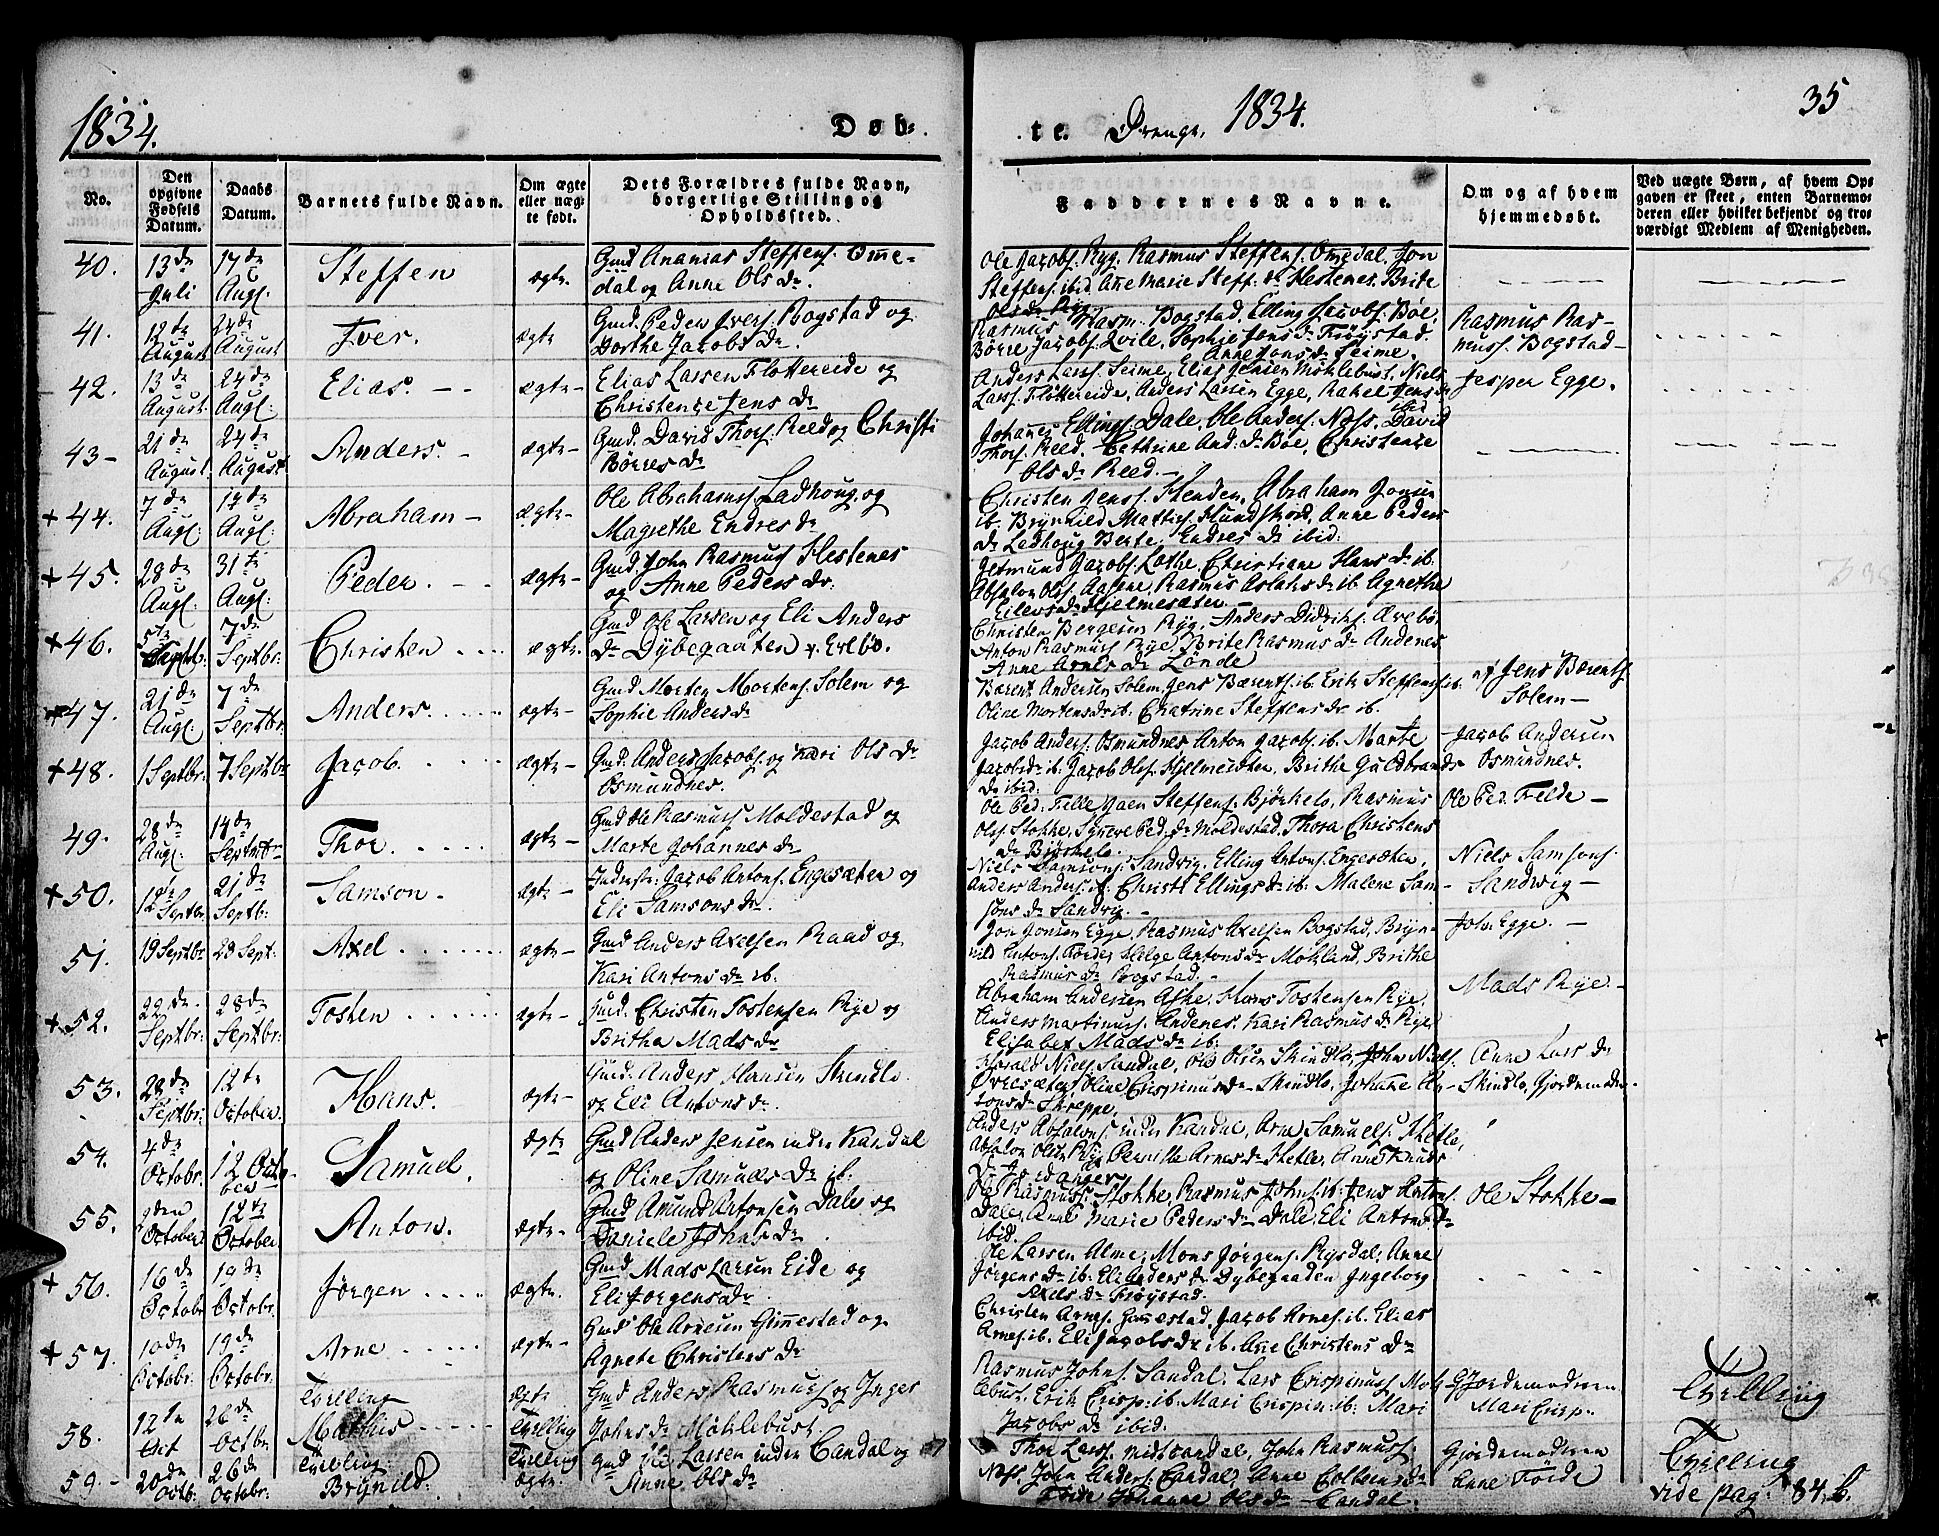 1834.
Døb=
te. Drenge. 1834.
35
No.
Den opgivne Fødsels Datum.
Daabs Datum.
Barnets fulde Navn.
Om ægte eller uægte født.
Dets Forældres fulde Navn, borgerlige Stilling og Opholdssted.
Faddernes Navne.
Om og af hvem hjemmedøbt.
Ved uægte Børn, af hvem Opgaven er skeet, enten Barnemoderen eller hvilket bekjendt og troværdigt Medlem af Menigheden.
40. 13de Juli 17de Augl. Steffen ægte.
Gmd Ananias Steffens. Omme-
dal og Anne Ols Dr.
Ole Jacobs. Ryg. Rasmus Steffens. Omedal, Jon
Steffens. ibid. Ane Marie Steff: Dr Hestenes. Bride
Ols Dr Ryg.
41. 12te August 24de August Iver. ægte
Gmd. Peder Ivers. Bogstad og
Dorthe Jacobs Dr.
Rasmus Rasm. Bogstad, Elling Jacobs. Bøe,
Børre Jacobs. Qvile, Sophie Jons Dr Frøystad.
Anne Jons Dr Seime.
Rasmus Ras-
muss. Bogstad-
42. 13de August. 24de Augl: Elias. -- ægte-
Elias Larsen Flottereide og
Christense Jens Dr
Anders Larss. Seime, Elias Jensen Möklebust, Niels
Larss. Flöttereide, Anders Larsen Egge, Rahel Jens Dr
ibid
Jesper Egge.
43- 21de August 24de August Anders. - ægte-
Gmd. David Thors. Reed og Christi
Börres Dr
Johannes Ellings. Dale, Ole Anders. Noss, David
Thors. Reed. Cathrine And: Dr Böe, Christense
Ols Dr Reed. -
+44. 7de Augl: 17de Augl: Abraham - ægte-
Ole Abrahams. Ladhoug, og
Magrethe Endres Dr
Christen Jens. Henden, Abraham Jonsen
ib. Brynhild Mattis. Hundskord, Anne Peders
Dr Ledhoug Berte Endres Dr ibid:
+45. 28de Augl: 31te Augl: Peder. -- ægte-
Gmd. John Rasmus Hestenes
og Anne Peders Dr.
Jetmund Jacobs. Lothe, Christiane Hans Dr ib.
Absalon Ols. Aasene, Rasmus Aslaks Dr ib. Agnethe
Eilevs Dr Hjelmesæter -
+46. Septbr: 7de Septbr: Christen .... ægte.
Gmd Ole Larsen og Eli Anders
Dr Dybegaaten v. Evebö.
Christen Bergesen Ryg. Anders Didriks. Ævebö,
Anton Rasmus. Rye, Brite Rasmus Dr Andenes
Anne Arnes Dr Lönde
+47. 21de Augl. 7de Septbr: Anders. ..... ægte-
Gmd Morten Mortens. Solem og
Sophie Anders Dr
Bærent Andersen Solem. Jens Bærents. ib. Erik Steffens. ib.
Oline Mortens Dr ib. Chatrine Steffens Dr ib.
af Jens Bærents.
Solem-
+48. 1 Septbr. 7 Septbr Jacob. .... ægte-
Gmd. Anders Jacobs. og Kari Ols Dr
Osmundnes.
Jacob Anders. Osmundnes, Anton Jacobs. ib. Marte
Jacobs Dr ib. Jacob Ols. Hjelmesæter, Brithe Guldbrands-
Dr ibid.
Jacob Andersen
Osmundnes.
49. 28de Augl: 14de Septmbr Thor. ..... ægte-
Gmd Ole Rasmus. Moldestad og
Marte Johannes Dr
Ole Ped: Felle Jaen Steffens. Björkelo, Rasmus
Ols. Stokke, Ped: Dr Moldestad, Thora Christens
Dr Björkelo.
Ole Ped. Felde -
+50. 12te Septbr. 21de Septb: Samson. ægte -
Inderstr: Jacob Antons. Engesæten og
Eli Samsons Dr.
Niels Samsons. Sandvig. Elling Antons. Engesæten,
Anders Anders. ib. Christi Ellings Dr ib. Malene Sam-
sons Dr Sandvig. -
Niels Samsons.
Sandwig -
51. 19 Septbr 28 Sept. Axel ...... ægte-
Gmd Anders Axelsen Raad og
Kari Antons Dr ib.
Jon Jonsen Egge, Rasmus Axelsen Bogstad, Bryn-
hild Antons. Förde, Helge Antons Dr Mökland, Brithe
Rasmus Dr Bogstad. -
Joh. Egge. -
+52. 22de Septbr: 28de Septbr: Tosten ...... ægte-
Gmd. Christen Tostensen Rye og
Britha Mads Dr
Abraham Andersen Aske, Hans Tostensen Rye,
Anders Martinus. Andenes. Kari Rasmus Dr Rye,
Elisabet Mads Dr ib.
Mads Rye -
53. 28de Septbr: 12te October. Hans. ægte-
Gmd. Anders Hansen Skindlo.
og Eli Antons Dr.
Harald Niels. Sandal, Ole Olsen Skindlo, John Niels.
Övresæter, Oline Crispinus Dr Skindlo, Johane An-
tons Dr Skreppe.
Anne Lars Dr
Skindlo, Gjordemoder.
54. 4de Octobr. 12 October Samuel. ægte
Gmd Anders Jensen indre Kandal
og Oline Samuels Dr ib.
Anders Absalons. indre Kandal, Arne Samuels. Hetle,
Absalon Olsen Rye Pernille Arnes Dr Hetle, Anne Knuds
Dr
55. 9den October 12te October Anton. ægte-
Gmd Amund Antonsen Dale og
Daniele Johns Dr.
Ole Rasmus. Stokke, Rasmus Johns. ib. Jens Antons.
Dale, Ane Marie Peders Dr Dale, Eli Antons Dr
ibid.
Ole Stokke -
+56. 16de Octobr 19de Octobr. Jörgen .... ægte.
Gmd Mads Larsen Eide og
Eli Jörgens Dr
Ole Larsen Alme, Mons Jörgens. Rysdal, Anne
Jörgens Dr ib. Eli Anders Dr Dybegaaden Ingeborg
Axels Dr Fröystad.
+57. 10de Octobr. 19de Octobr. Arne ..... ægte-
Gmd Ole Arnesen Gimmestad og
Agnete Christens Dr
Christen Arnes. Gimmestad, Jacob Arnes. ib. Elias
Arnes. ib. Eli Jacobs Dr ib. Ane Christens Dr
58. 12te Oct 26de Octbr. Tvilling Mathis ----- ægte Tvilling
Gmd Anders Rasmus. og Inger
Johns Dr Möklebust.
Rasmus Johns. Sandal. Lars Crispinus. Mok-
lebust, Erik Crisp. ib. Mari Crispin: ib: Mari
Jacobs Dr ibid.
Gjordemoderen
Mari Crisp.
Tvilling
59. - 20de Octb. 26de Octobr. Tvilling. Brynild. Tvilling ægte.
Gmd Ole Larsen indre Candal og
Anne Ols Dr
Thor Larss. midtcandal, John Rasmus.
Noss, John Anders. Candal, Anne Colbens Dr
Förde Johanne Ols Dr Candal.
Gjordemoderen
Anne Förde
Tvilling
vide pag: 84.b.